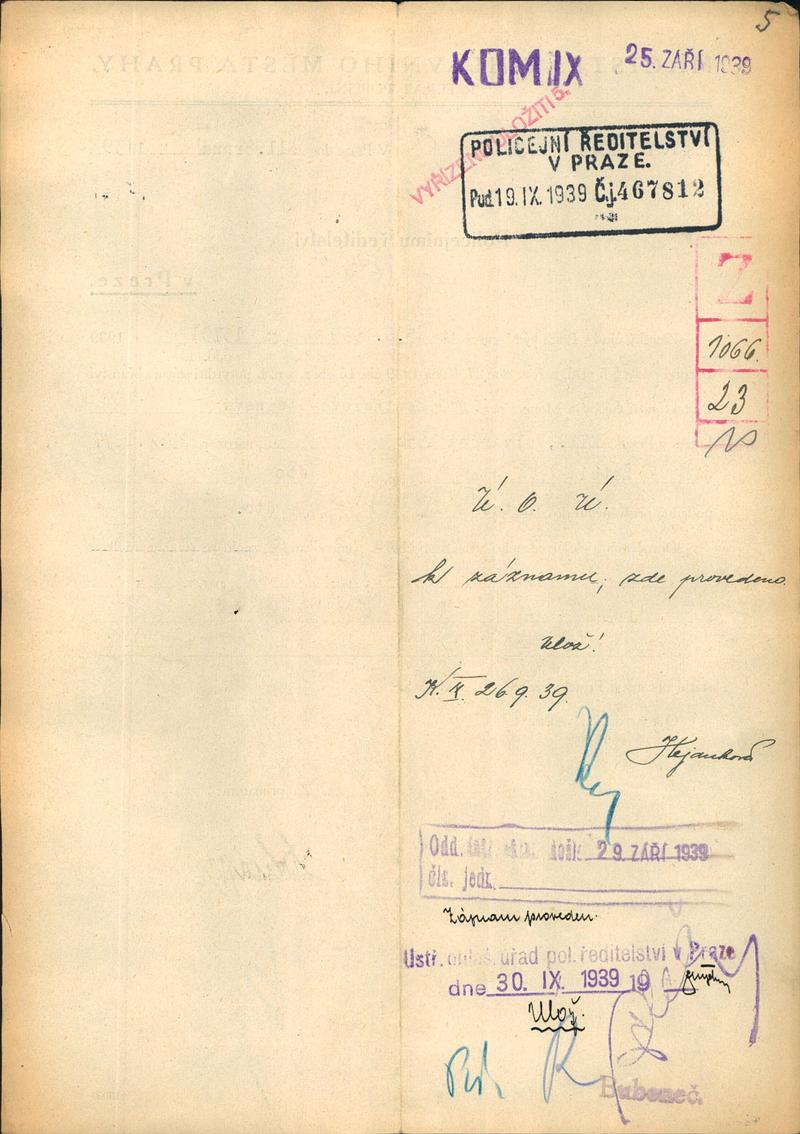 5
KOM IX 25. ZÁŘÍ 1939
VYŘÍZENO ULOŽITI 5.
POLICEJNÍ ŘEDITELSTVÍ
V PRAZE.
Pud. 19. IX. 1939 Č.j. 467812
Z
1066.
23
Ú. O. Ú.
k záznamu, zde provedeno.
Ulož!
K. II. 26 9. 39.
Odd. došlo 29. ZÁŘÍ 1939
čís. jedn.
Záznam proveden.
Ustř. ohlaš. úřad pol. ředitelství v Praze
dne 30. IX. 1939 19
Ulož.
Bubeneč.